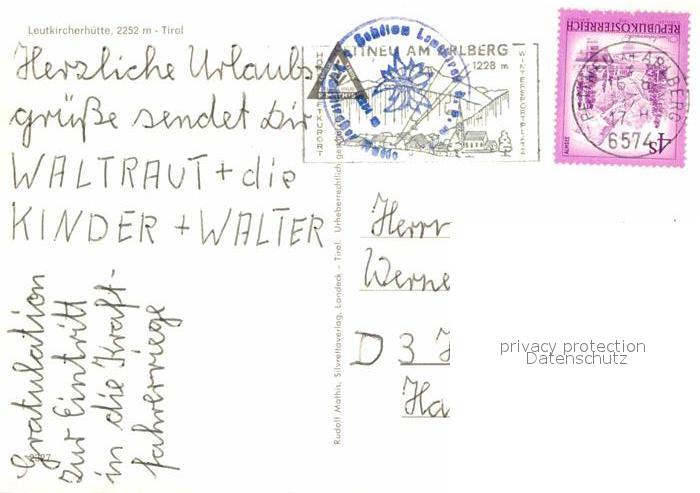 Leutkircherhütte, 2252 m - Tirol
Herzliche Urlaubs
grüße sendet Dir
WALTRAUT + die
KINDER + WALTER
Gratulation
zur Eintritt
in die Kraft-
fahrerriege
2327
Rudolf Mathis, Silvrettaverlag, Landeck - Tirol. Urheberrechtlich
AM ARLBERG
1228 m
WINTERSPORTPLATZ
REPUBLIK ÖSTERREICH
ALMSEE
4S
ARLBERG
17
6574
Herrn
Werne
D 3
Ha
privacy protection
Datenschutz